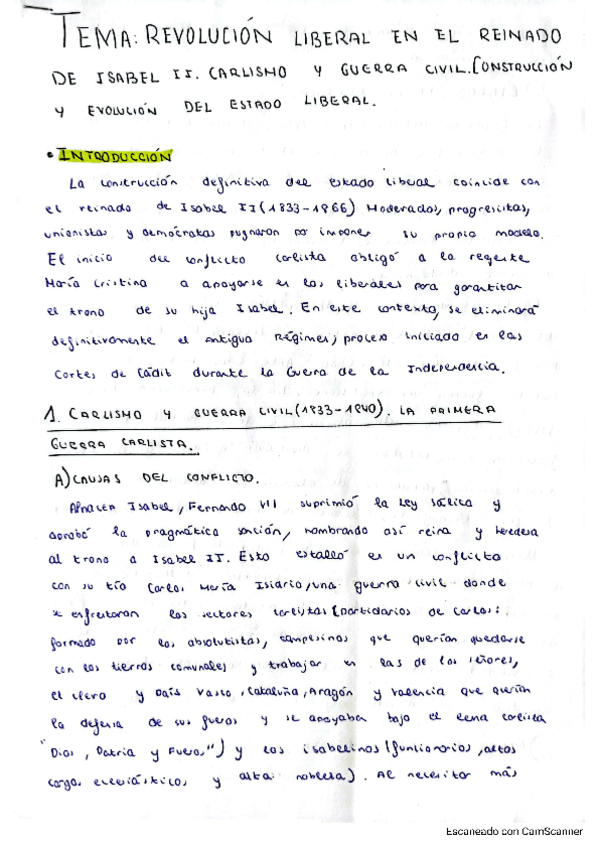 TEMA: REVOLUCIÓN LIBERAL EN EL REINADO
DE ISABEL II. CARLISMO Y GUERRA CIVIL. CONSTRUCCIÓN
Y EVOLUCIÓN DEL ESTADO LIBERAL.
• INTRODUCCIÓN
La construcción definitiva del estado liberal coincide con
el reinado de Isabel II (1833-1866) Moderados, progresistas,
unionistas y demócratas pugnaron por imponer su propio modelo.
El inicio del conflicto carlista obligó a la regente
María Cristina a apoyarse en los liberales para garantitar
el trono de su hija Isabel. En este contexto, se eliminará
definitivamente el Antiguo Régimen, proceso iniciado en las
Cortes de Cádit durante la Guerra de la Independencia.
1. CARLISMO Y GUERRA CIVIL (1833-1840). LA PRIMERA
GUERRA CARLISTA.
A) CAUSAS DEL CONFLICTO.
Al nacer Isabel, Fernando VII suprimió la Ley Sálica y
aprobó la pragmática sanción, nombrando así reina y heredera
al trono a Isabel II. Esto estalló en un conflicto
con su tío Carlos María Isidrio, una guerra civil donde
se enfrentaron los sectores carlistas (partidarios de Carlos:
formado por los absolutistas, campesinos que querían quedarse
con las tierras comunales y trabajar en las de los señores,
el clero y País Vasco, Cataluña, Aragón y Valencia que querían
la defensa de sus fueros y se apoyaban bajo el lema carlista
"Dios, Patria y Fueros") y los isabelinos (funcionarios, altos
cargos eclesiásticos y alta nobleta). Al necesitar más
Escaneado con CamScanner